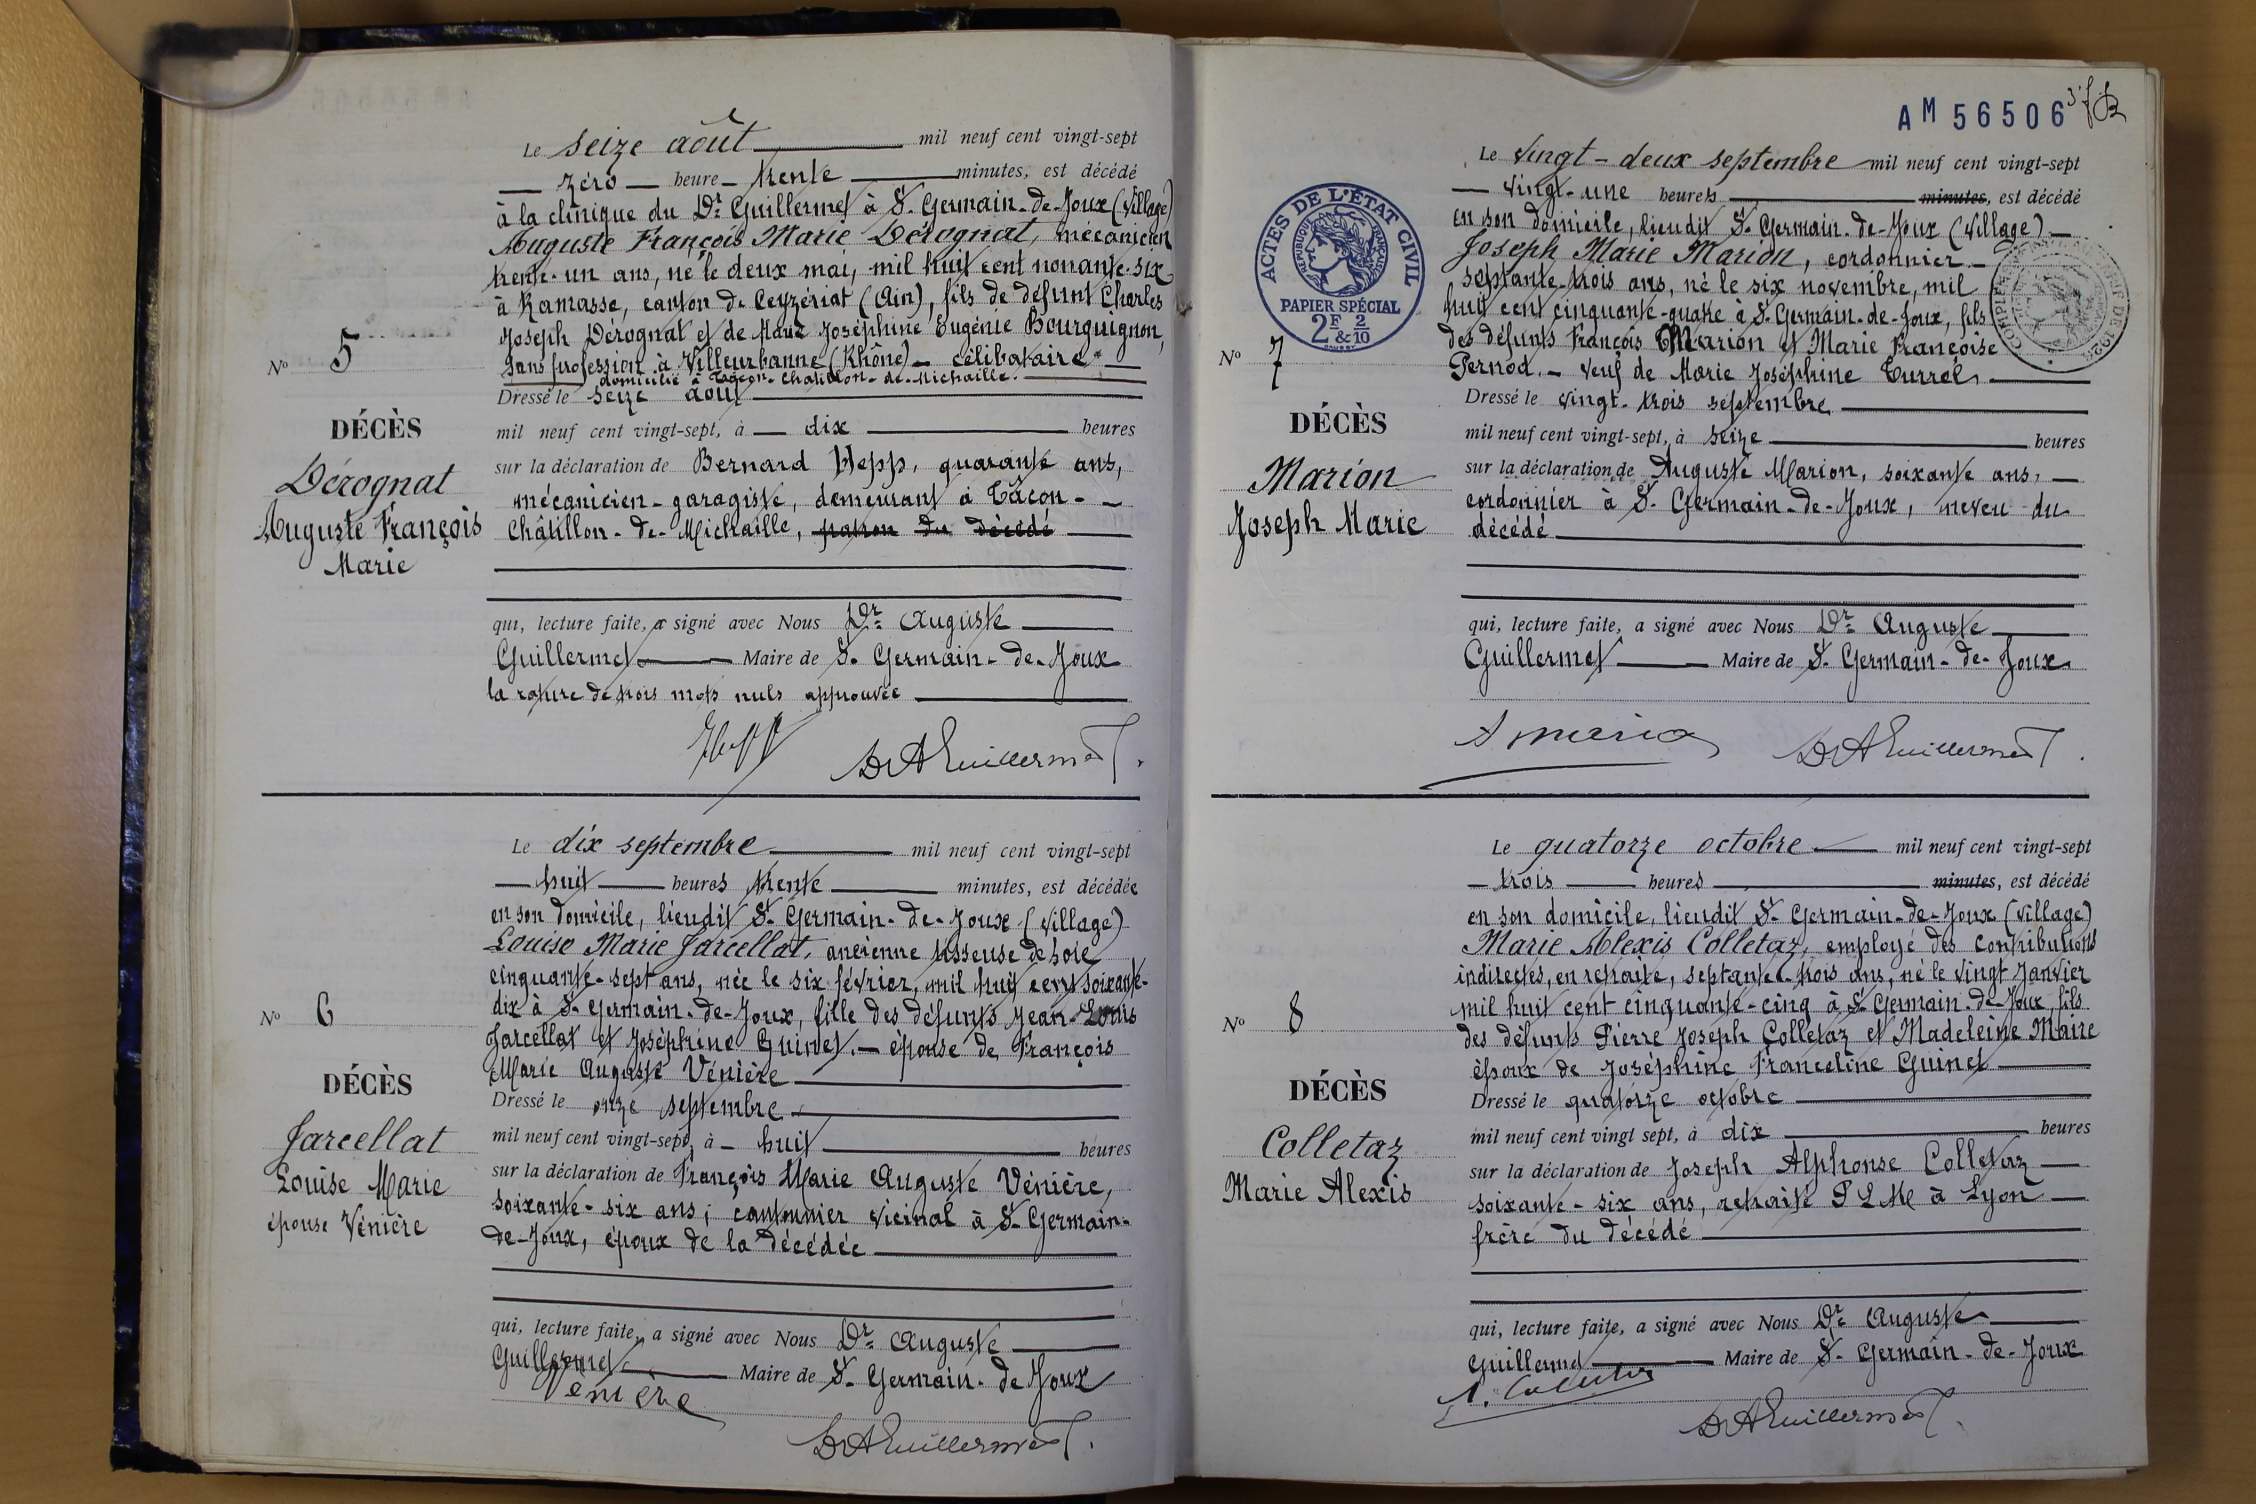 Le seize août mil neuf cent vingt-sept
zéro heure trente minutes, est décédé
à la clinique du Dr Guillermet à St Germain-de-Joux (Village)
Auguste François Marie Dérognat, mécanicien
trente-un ans, né le deux mai, mil huit cent nonante-six
à Ramasse, canton de Ceyzériat (Ain), fils de défunt Charles
Joseph Dérognat et de Marie Joséphine Eugénie Bourguignon,
sans profession à Villeurbanne (Rhône) - célibataire
domicilié à Tacon-Châtillon-de-Michaille.
Dressé le seize août
mil neuf cent vingt-sept, à dix heures
sur la déclaration de Bernard Hepp, quarante ans,
mécanicien-garagiste, demeurant à Tâcon-
Châtillon-de-Michaille, patron du décédé
qui, lecture faite, a signé avec Nous Dr Auguste
Guillermet Maire de St Germain-de-Joux
la rature de trois mots nuls approuvée
Hepp Dr A Guillermet
No 5
DÉCÈS
Dérognat
Auguste François
Marie
Le dix septembre mil neuf cent vingt-sept
huit heures trente minutes, est décédée
en son domicile, lieudit St Germain-de-Joux (Village)
Louise Marie Jarcellat, ancienne tisseuse de soie
cinquante-sept ans, née le six février, mil huit cent soixante-
dix à St Germain-de-Joux, fille des défunts Jean-Louis
Jarcellat et Joséphine Guinet. - épouse de François
Marie Auguste Vénière
Dressé le onze septembre
mil neuf cent vingt-sept, à huit heures
sur la déclaration de François Marie Auguste Vénière,
soixante-six ans, cantonnier vicinal à St Germain-
de-Joux, époux de la décédée
qui, lecture faite, a signé avec Nous Dr Auguste
Guillermet Maire de St Germain-de Joux
Vénière
Dr A Guillermet
No 6
DÉCÈS
Jarcellat
Louise Marie
épouse Vénière
AM 56506
Le vingt-deux septembre mil neuf cent vingt-sept
vingt-une heures minutes, est décédé
en son domicile, lieudit St Germain-de-Joux (Village)
Joseph Marie Marion, cordonnier
septante-trois ans, né le six novembre, mil
huit cent cinquante-quatre à St Germain-de-Joux, fils
des défunts François Marion et Marie Françoise
Pernod. - veuf de Marie Joséphine Turrel,
Dressé le vingt-trois septembre
mil neuf cent vingt-sept, à seize heures
sur la déclaration de Auguste Marion, soixante ans,
cordonnier à St Germain-de-Joux, neveu du
décédé
qui, lecture faite, a signé avec Nous Dr Auguste
Guillermet Maire de St Germain-de-Joux
A Marion Dr A Guillermet
ACTES DE L'ÉTAT CIVIL
RÉPUBLIQUE FRANÇAISE
PAPIER SPÉCIAL
2F & 2/10
No 7
DÉCÈS
Marion
Joseph Marie
Le quatorze octobre mil neuf cent vingt-sept
trois heures minutes, est décédé
en son domicile, lieudit St Germain-de-Joux (Village)
Marie Alexis Colletaz, employé des contributions
indirectes, en retraite, septante-trois ans, né le vingt Janvier
mil huit cent cinquante-cinq à St Germain-de-Joux, fils
des défunts Pierre Joseph Colletaz et Madeleine Maire
époux de Joséphine Franceline Guinet
Dressé le quatorze octobre
mil neuf cent vingt sept, à dix heures
sur la déclaration de Joseph Alphonse Colletaz
soixante-six ans, retraité P L M à Lyon
frère du décédé
qui, lecture faite, a signé avec Nous Dr Auguste
Guillermet Maire de St Germain-de-Joux
A. Colletaz
Dr A Guillermet
No 8
DÉCÈS
Colletaz
Marie Alexis